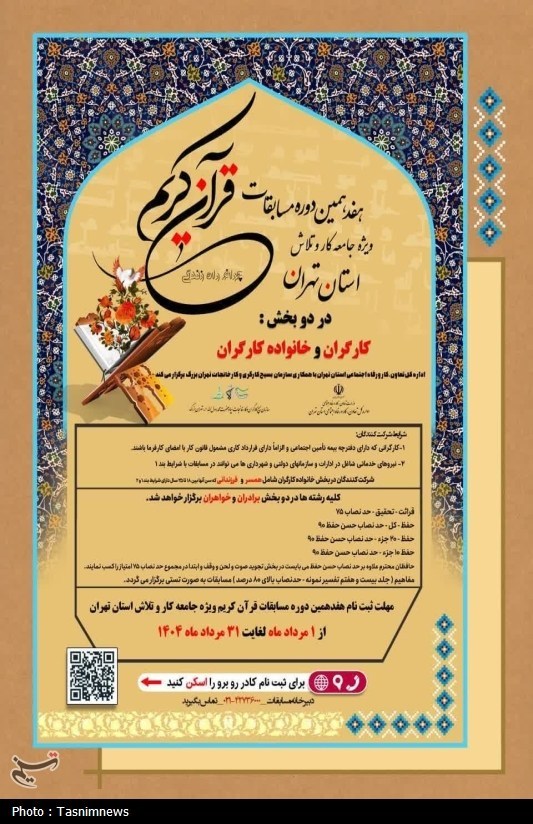 هفدهمین دوره مسابقات
قرآن کریم
ویژه جامعه کار و تلاش
استان تهران
چراغ راه زندگی
در دو بخش :
کارگران و خانواده کارگران
اداره کل تعاون، کار و رفاه اجتماعی استان تهران با همکاری سازمان بسیج کارگری و کارخانجات تهران بزرگ برگزار می کند
شرایط شرکت کنندگان:
۱- کارگرانی که دارای دفترچه بیمه تأمین اجتماعی و الزاماً دارای قرارداد کاری مشمول قانون کار با امضای کارفرما باشند.
۲- نیروهای خدماتی شاغل در ادارات و سازمانهای دولتی و شهرداری ها می توانند در مسابقات با شرایط بند ۱
شرکت کنندگان در بخش خانواده کارگران شامل همسر و فرزندانی که سن آنها بین ۱۸ تا ۲۵ سال دارای شرایط بند ۱ و ۲
کلیه رشته ها در دو بخش برادران و خواهران برگزار خواهد شد.
قرائت - تحقیق - حد نصاب ۷۵
حفظ - کل - حد نصاب حسن حفظ ۹۰
حفظ - ۲۰ جزء - حد نصاب حسن حفظ ۹۰
حفظ ۱۰ جزء - حد نصاب حسن حفظ ۹۰
حافظان محترم علاوه بر حد نصاب حسن حفظ می بایست در بخش تجوید صوت و لحن وقف و ابتدا در مجموع حد نصاب ۷۵ امتیاز را کسب نمایند.
مفاهیم ( جلد بیست و هفتم تفسیر نمونه - حدنصاب بالای ۸۰ درصد ) مسابقات به صورت تستی برگزار می گردد.
مهلت ثبت نام هفدهمین دوره مسابقات قرآن کریم ویژه جامعه کار و تلاش استان تهران
از ۱ مرداد ماه لغایت ۳۱ مرداد ماه ۱۴۰۴
برای ثبت نام کادر رو برو را اسکن کنید
دبیرخانه مسابقات _ ۲۲۷۳۶۰۰۰-۰۲۱ _ تماس بگیرید
تسنیم
Photo : Tasnimnews